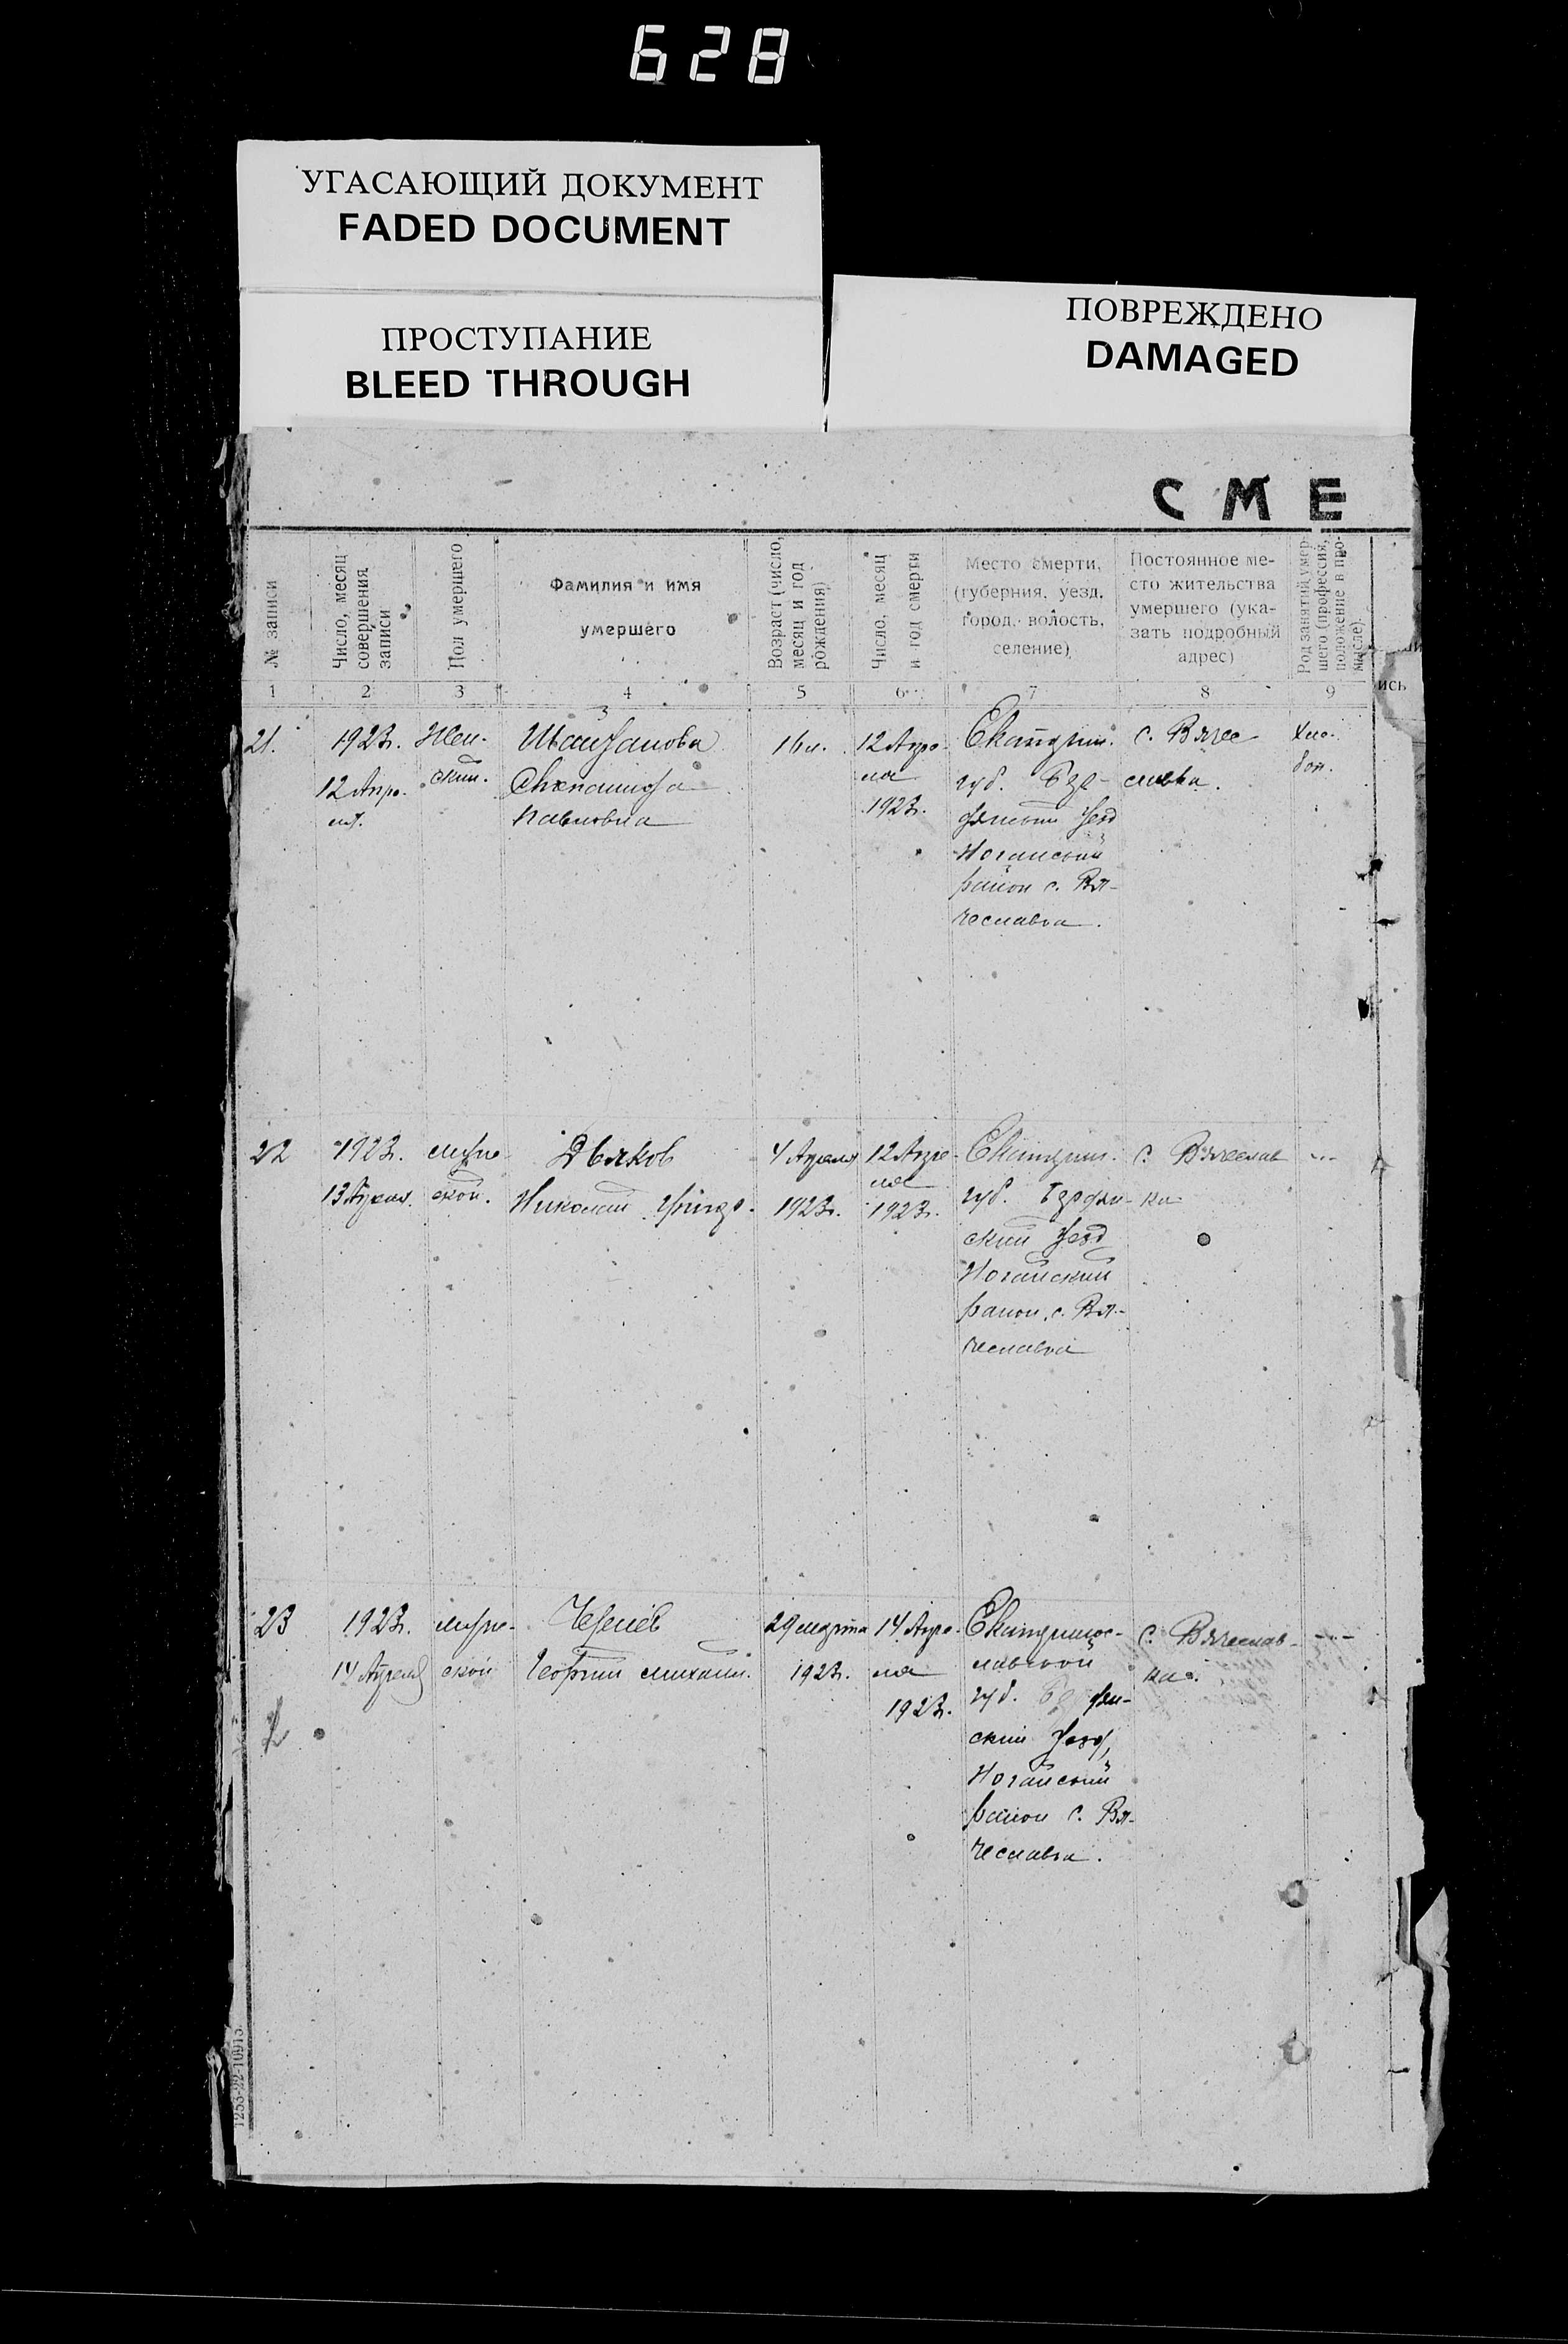 628
УГАСАЮЩИЙ ДОКУМЕНТ
FADED DOCUMENT
ПРОСТУПАНИЕ
BLEED THROUGH
ПОВРЕЖДЕНО
DAMAGED
С М Е
№ записи
Число, месяц
совершения
записи
Пол умершего
Фамилия и имя
умершего
Возраст (число,
месяц и год
рождения)
Число, месяц
и год смерти
Место смерти,
(губерния, уезд,
город, волость,
селение)
Постоянное ме-
сто жительства
умершего (ука-
зать подробный
адрес)
Род занятий умер-
шего (профессия,
положение в про-
мысле).
1
2
3
4
5
6
7
8
9
ись
21.
1923г.
12 Апре-
ля.
Жен-
ский.
Павловна
16 л.
12 Апре-
ля
1923г.
Екатерин.
губ. Бер-
дянский Уезд
Ногайский
район с. Вя-
чеславка.
с. Вячес
лавка.
Хле-
боп.
22
1923г.
13 Апреля
мужс-
ской.
Дьяков
Николай
4 Апреля
1923г.
12 Апре-
ля
1923г.
Екатерин.
губ. Бердян-
ский Уезд
Ногайский
район, с. Вя-
чеславка
с. Вячеслав
ка
23
1923г.
14 Апреля
муж-
ской
Георгий Михаил.
29 марта
1923г.
14 Апре-
ля
1923г.
Екатеринос-
лавской
губ. Бердян-
ский Уезд,
Ногайский
район с. Вя-
чеславка.
с. Вячеслав-
ка.
1253-22-10915